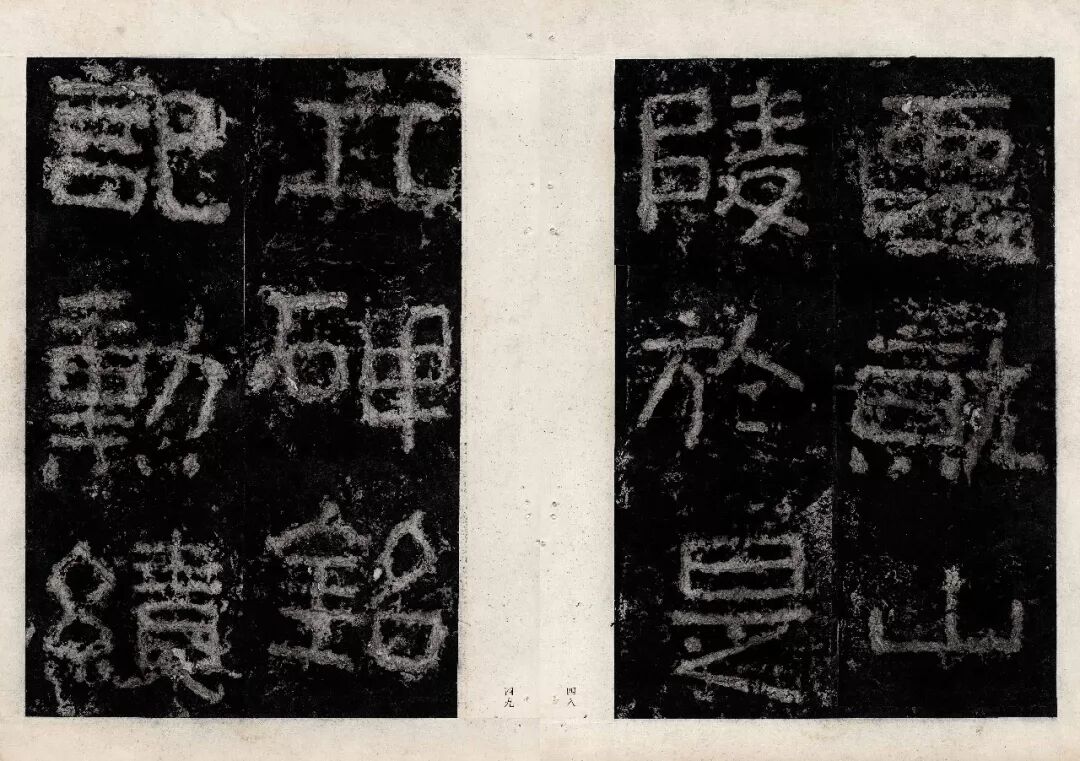 遷就山
陵於是
四八
立碑銘
記勳績
四九